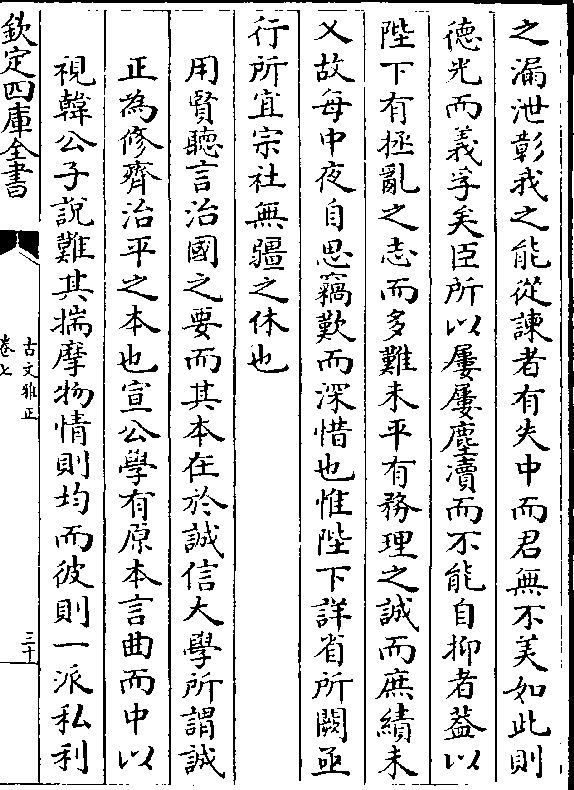 之漏泄彰我之能從諫者有失中而君無不美如此則
德光而義孚矣臣所以屢屢塵瀆而不能自抑者葢以
陛下有拯亂之志而多難未平有務理之誠而庶績未
乂故每中夜自思竊歎而深惜也惟陛下詳省所闕亟
行所宜宗社無疆之休也
用賢聽言治國之要而其本在於誠信大學所謂誠
正為修齊治平之本也宣公學有原本言曲而中以
視韓公子說難其揣摩物情則均而彼則一派私利
欽定四庫全書
古文雅正
卷七
三十